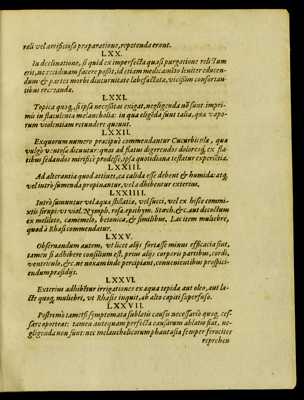 rali vel artificiosa præparatione, repetenda erunt.
LXX.
In declinatione, si quid ex imperfecta quasi purgatione relictum
erit, ne recidiuam facere possit, id etiam medicamẽto leniter educen-
dum & partes morbi diuturnitate labefactatæ, vicissim confortan-
tibus recreandæ.
LXXI.
Topica quoq;, si ipsa necessitas exigat, negligenda nõ sunt: impri-
mis in flatulenta melancholia: in qua eligẽda sunt talia, quæ vapo-
rum violentiam retundere queunt.
LXXII.
Ex quorum numero præcipuè commendantur Cucurbitulæ, quæ
vulgò ventosæ dicuntur: quas ad flatus digerendos dolorésq; ex fla-
tibus sedandos mirificè prodesse, ipsa quotidiana testatur experiẽtia.
LXXIII.
Ad alterantia quod attinet, ea calida esse debent & humida: atq;
vel intrò sumenda propinantur, vel adhibentur exterius,
LXXIIII.
Intrò sumuntur vel aquæ stillatitiæ, vel succi, vel ex hisce commi-
xtis sirupi: vt viol. Nymph. rosa. epithym. Stœch. &c. aut decoctum
ex meliloto, camemelo, betonica, & similibus. Lac item muliebre,
quod à Rhasi commendatur.
LXXV.
Obseruandum autem, vt licet alijs fortasse minus efficacia sint,
tamen si adhibere consilium est, prius alijs corporis partibus, cordi,
ventriculo, &c. ne noxam inde percipiant, conuenientibus prospici-
endum præsidijs.
LXXVI.
Exterius adhibẽtur irrigationes ex aqua tepida aut oleo, aut la-
cte quoq; muliebre, vt Rhasis inquit, ab alto capiti superfuso.
LXXVII.
Postremò tametsi symptomata sublatis causis necessariò quoq; ces-
sare oporteat: tamen antequam perfecta causarum ablatio fiat, ne-
gligenda non sunt: nec melancholicorum phantasia semper ferociter
reprehen